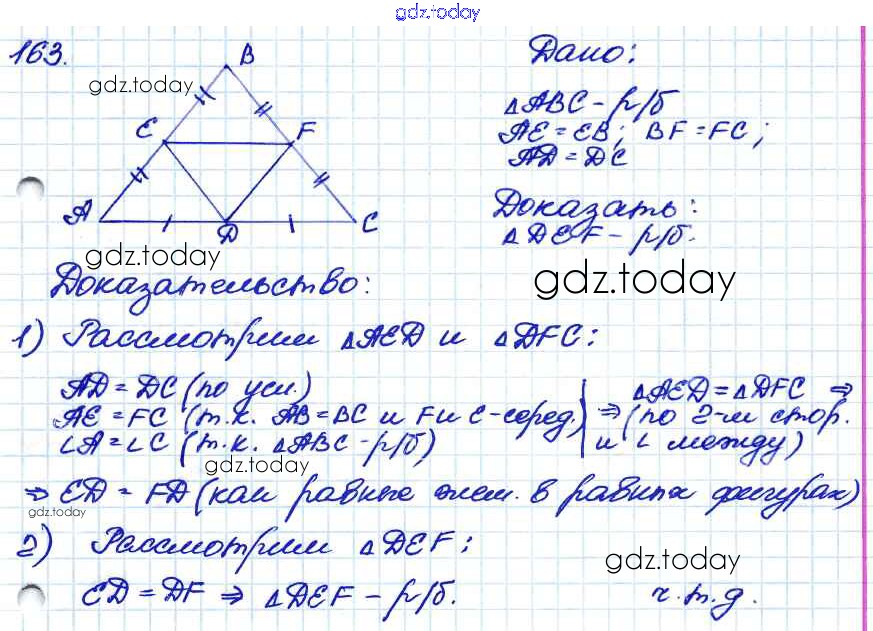 gdz.today
163.
B
gdz.today
E
F
A
D
C
gdz.today
Дано:
△ABC - р/б
AE = EB; BF = FC;
AD = DC
Доказать:
△DEF - р/б.
gdz.today
Доказательство:
1) Рассмотрим △AED и △DFC:
AD = DC (по усл.)
AE = FC (т.к. AB = BC и F и E - серед.)
∠A = ∠C (т.к. △ABC - р/б)
⇒ △AED = △DFC ⇒
(по 2-м стор.
и ∠ между)
gdz.today
⇒ ED = FD (как равные элем. в равных фигурах)
gdz.today
2) Рассмотрим △DEF:
gdz.today
ED = DF ⇒ △DEF - р/б.
ч.т.д.